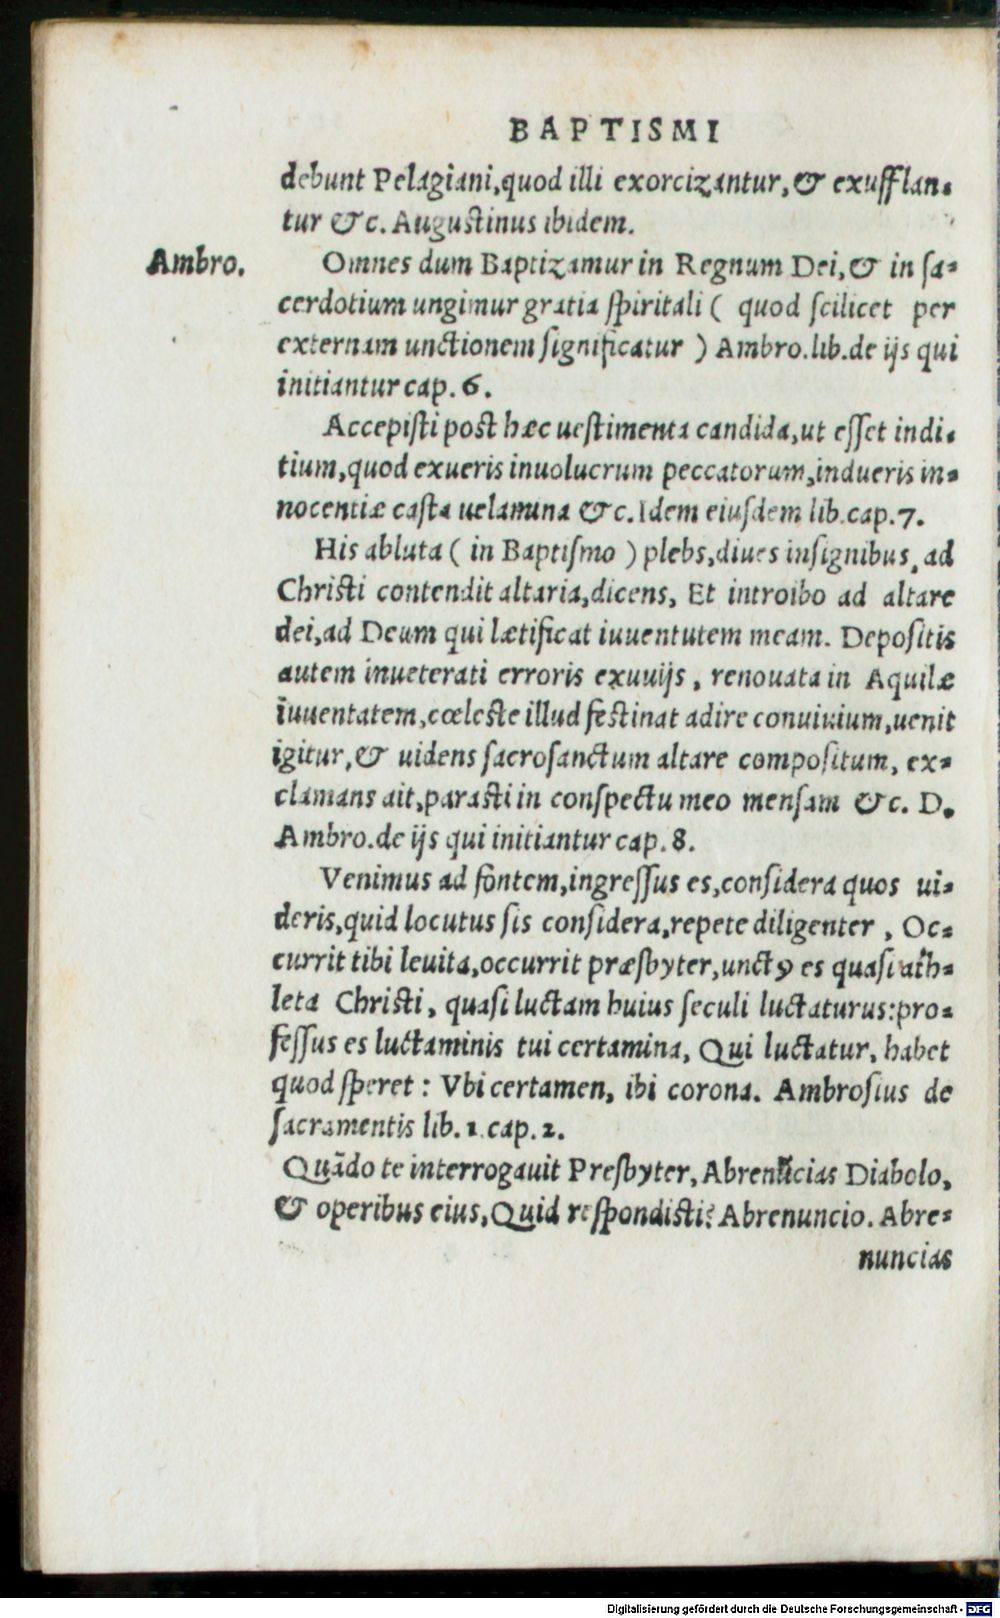 BAPTISMI
debunt Pelagiani,quod illi exorcizantur,& exufflan-
tur &c. Augustinus ibidem.
Ambro.
Omnes dum Baptizamur in Regnum Dei,& in sa-
cerdotium ungimur gratia spiritali ( quod scilicet per
externam unctionem significatur ) Ambro.lib.de ijs qui
initiantur cap.6.
Accepisti post hæc uestimenta candida,ut esset indi-
tium,quod exueris inuolucrum peccatorum,indueris in-
nocentiæ casta uelamina &c.Idem eiusdem lib.cap.7.
His abluta ( in Baptismo ) plebs,diues insignibus, ad
Christi contendit altaria,dicens, Et introibo ad altare
dei,ad Deum qui lætificat iuuentutem meam. Depositis
autem inueterati erroris exuuijs, renouata in Aquilæ
iuuentatem,cœleste illud festinat adire conuiuium,uenit
igitur,& uidens sacrosanctum altare compositum, ex-
clamans ait,parasti in conspectu meo mensam &c. D.
Ambro.de ijs qui initiantur cap.8.
Venimus ad fontem,ingressus es,considera quos ui-
deris,quid locutus sis considera,repete diligenter, Oc-
currit tibi leuita,occurrit præsbyter,unctꝰ es quasi ath-
leta Christi, quasi luctam huius seculi luctaturus:pro-
fessus es luctaminis tui certamina, Qui luctatur, habet
quod speret: Vbi certamen, ibi corona. Ambrosius de
sacramentis lib.1.cap.2.
Quãdo te interrogauit Presbyter, Abrenũcias Diabolo,
& operibus eius,Quid respondisti? Abrenuncio. Abre-
nuncias
Digitalisierung gefördert durch die Deutsche Forschungsgemeinschaft - DFG